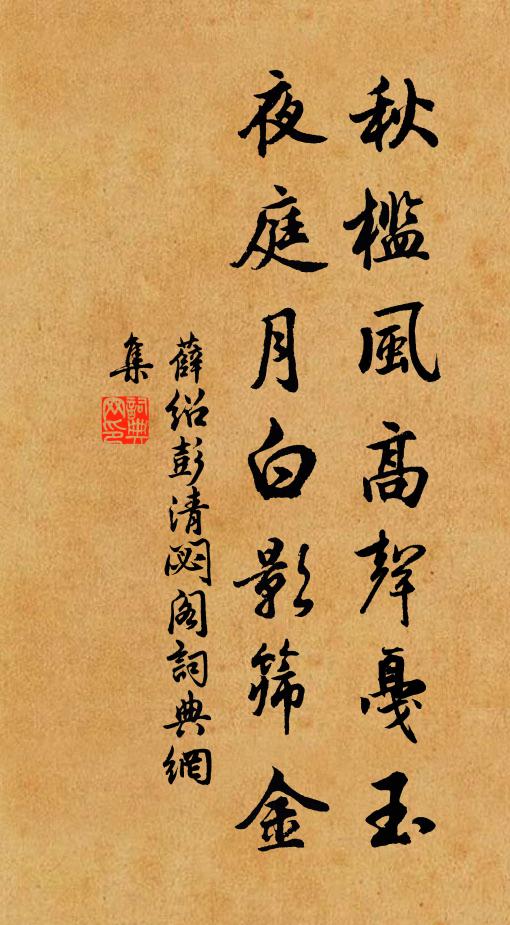 秋檻風高聲戛玉
夜庭月白影篩金
薛紹彭清閟閣詞典網
集
詞典網印